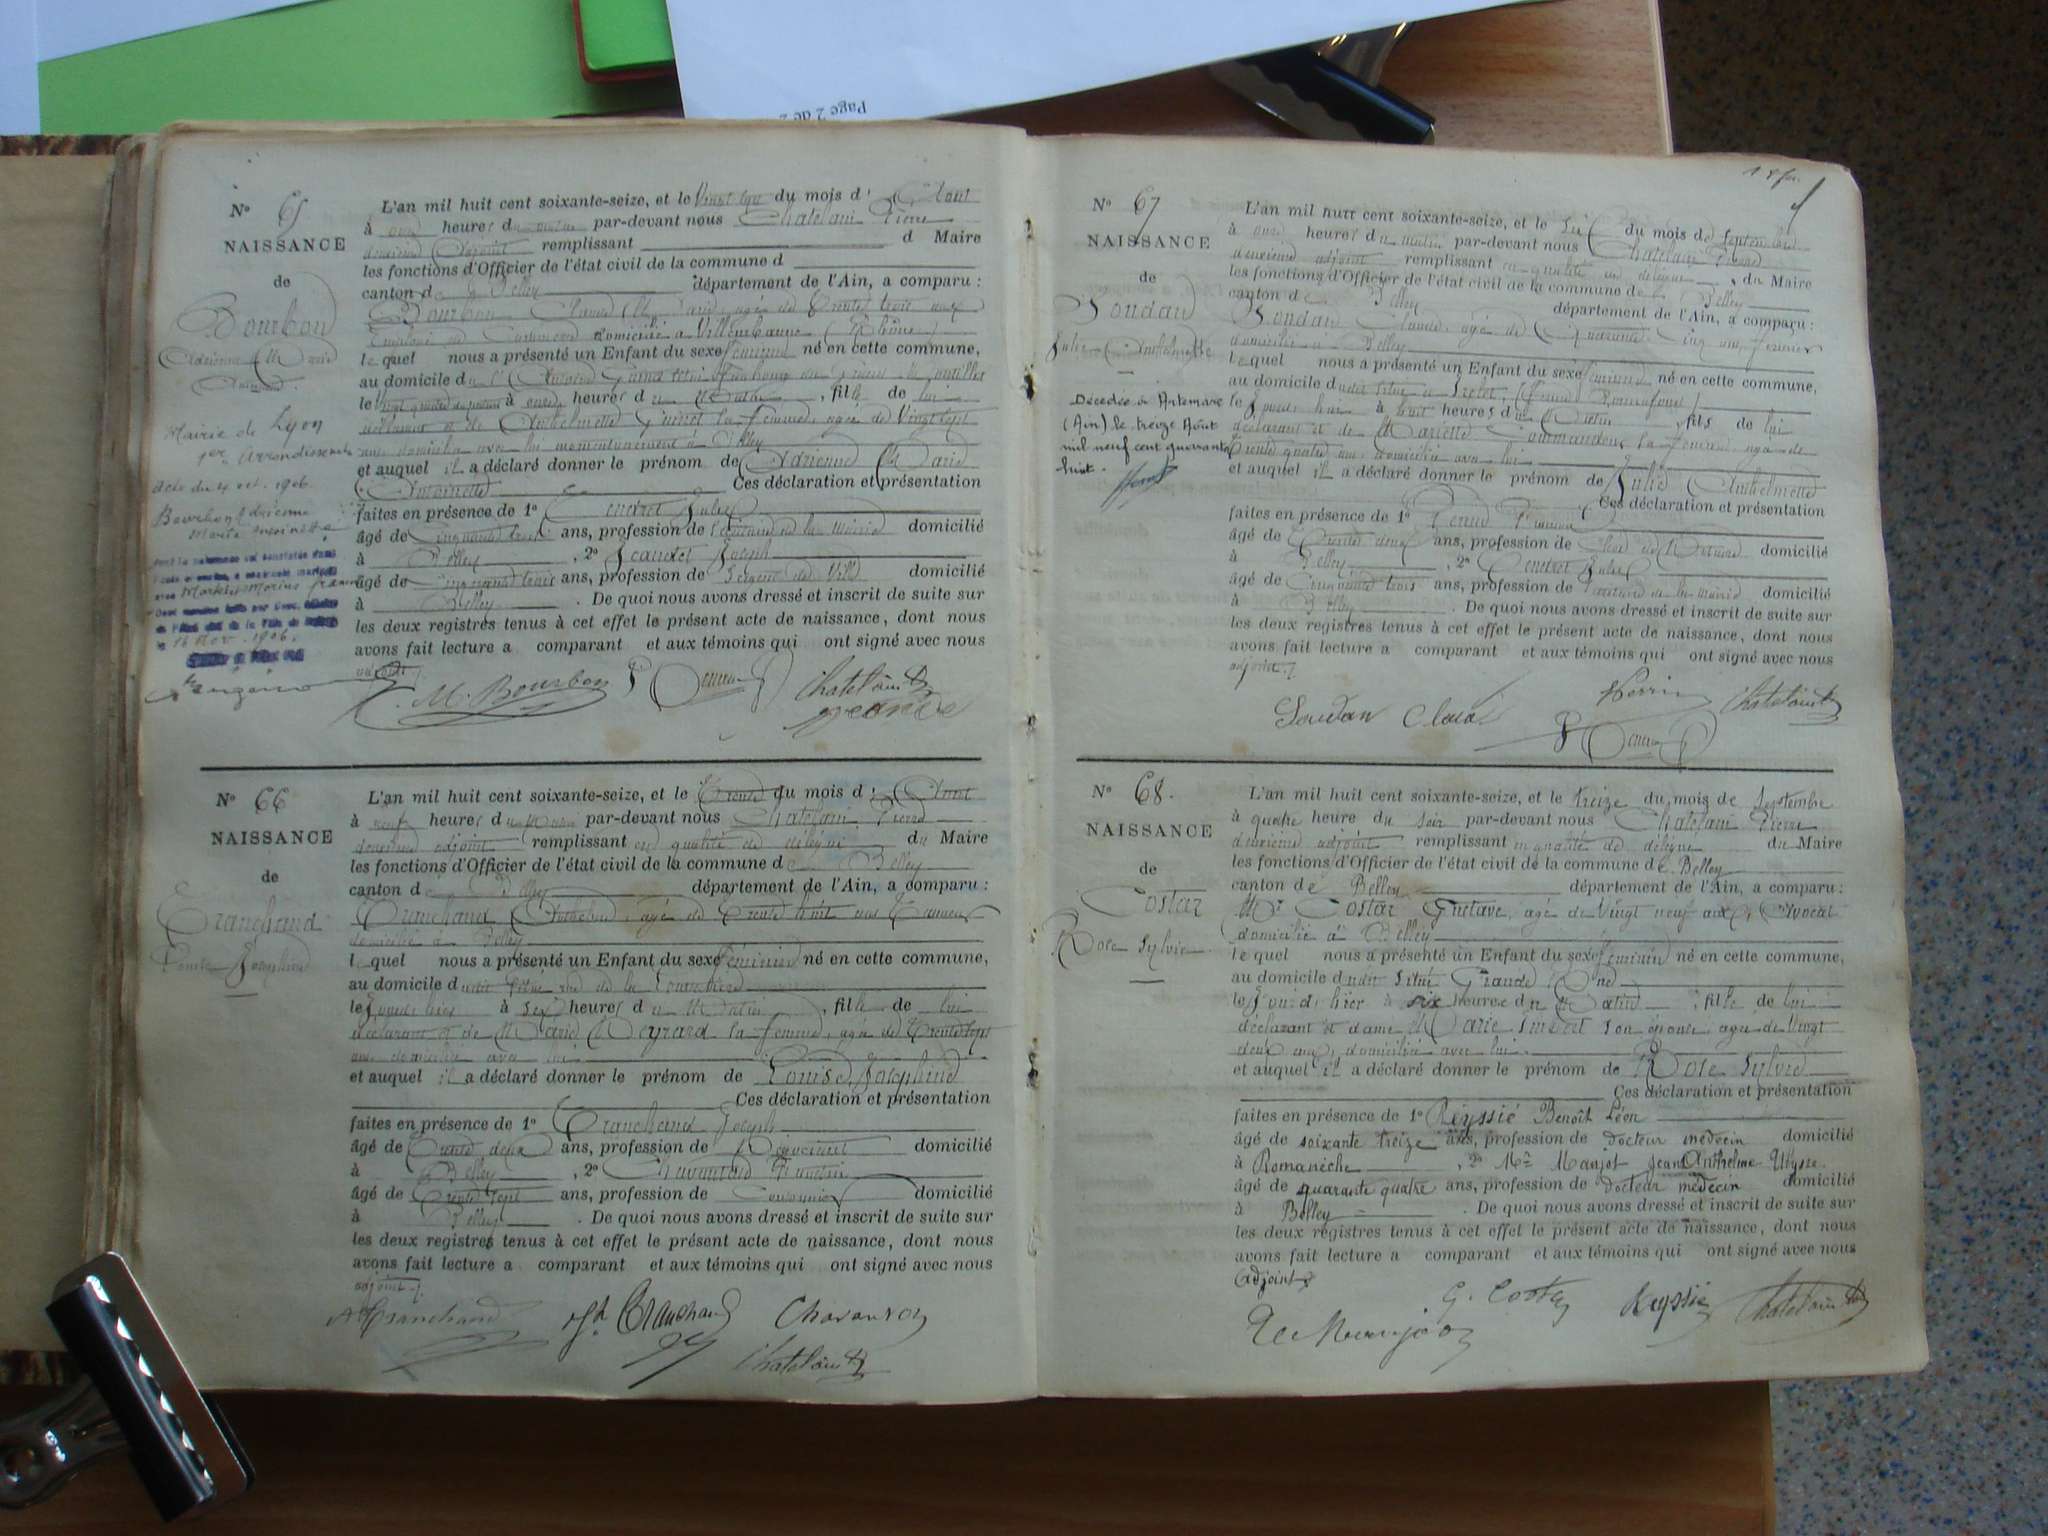 Page 2 de 2
N° 65
NAISSANCE
de
Bourbon
Adrienne Marie
Mairie de Lyon
1er Arrondissement
Acte du 4 oct. 1906
Bourbon Adrienne
Marie Antoinette
16 Nov. 1906.
L'an mil huit cent soixante-seize, et le du mois d' Aout
à onze heures du matin par-devant nous Chatelain Pierre
deuxième Adjoint remplissant d Maire
les fonctions d'Officier de l'état civil de la commune d
canton de Belley département de l'Ain, a comparu :
Bourbon Claude Marie, agé de Trente trois ans
Employé de Commerce domicilié à Villeurbanne (Rhône)
lequel nous a présenté un Enfant du sexe féminin né en cette commune,
au domicile d
le à onze heures du Matin, fille de lui
déclarant et de Anthelmette Guinet sa femme, agée de Vingt sept
ans domiciliée avec lui momentanement à Belley
et auquel il a déclaré donner le prénom de Adrienne Marie
Antoinette Ces déclaration et présentation
faites en présence de 1° Gendret Jules
âgé de Cinquante trois ans, profession de Secrétaire de la Mairie domicilié
à Belley, 2° Jeandet Joseph
âgé de Cinquante trois ans, profession de Sergent de Ville domicilié
à Belley. De quoi nous avons dressé et inscrit de suite sur
les deux registres tenus à cet effet le présent acte de naissance, dont nous
avons fait lecture a comparant et aux témoins qui ont signé avec nous
C. M. Bourbon Chatelain
N° 66
NAISSANCE
de
Tranchand
Louise Joséphine
L'an mil huit cent soixante-seize, et le Trente du mois d' Aout
à neuf heures du Matin par-devant nous Chatelain Pierre
deuxième adjoint remplissant en qualité de délégué du Maire
les fonctions d'Officier de l'état civil de la commune de Belley
canton de Belley département de l'Ain, a comparu :
Tranchand Anthelme, agé de Trente huit ans Tanneur
domicilié à Belley
lequel nous a présenté un Enfant du sexe féminin né en cette commune,
au domicile d situé rue de la
le Jour d'hier à Six heures du Matin, fille de lui
déclarant et de Marie Meyrard sa femme, agée de Trente sept
ans domiciliée avec lui
et auquel il a déclaré donner le prénom de Louise Joséphine
Ces déclaration et présentation
faites en présence de 1° Tranchand Joseph
âgé de Trente deux ans, profession de Négociant domicilié
à Belley, 2°
âgé de Trente sept ans, profession de Cordonnier domicilié
à Belley. De quoi nous avons dressé et inscrit de suite sur
les deux registres tenus à cet effet le présent acte de naissance, dont nous
avons fait lecture a comparant et aux témoins qui ont signé avec nous
adjoint
A Tranchand Jh Tranchand
Chatelain
N° 67
NAISSANCE
de
Soudan
Julie Anthelmette
Décédée à Artemare
(Ain) le treize Août
mil neuf cent quarante
huit.
L'an mil huit cent soixante-seize, et le Six du mois de Septembre
à onze heures du matin par-devant nous Chatelain Pierre
deuxième adjoint remplissant en qualité de délégué du Maire
les fonctions d'Officier de l'état civil de la commune de Belley
canton de Belley département de l'Ain, a comparu :
Soudan Claude, agé de Quarante Cinq ans, fermier
domicilié à Belley
lequel nous a présenté un Enfant du sexe féminin né en cette commune,
au domicile d
le Jour d'hui à huit heures du Matin, fille de lui
déclarant et de Mariette sa femme, agée de
Trente quatre ans, domiciliée avec lui
et auquel il a déclaré donner le prénom de Julie Anthelmette
Ces déclaration et présentation
faites en présence de 1°
âgé de Trente deux ans, profession de Clerc de Notaire domicilié
à Belley, 2° Gendret Jules
âgé de Cinquante trois ans, profession de Secrétaire de la Mairie domicilié
à Belley. De quoi nous avons dressé et inscrit de suite sur
les deux registres tenus à cet effet le présent acte de naissance, dont nous
avons fait lecture a comparant et aux témoins qui ont signé avec nous
adjoint
Soudan Claude Chatelain
N° 68.
NAISSANCE
de
Costaz
Rose Sylvie
L'an mil huit cent soixante-seize, et le treize du mois de Septembre
à quatre heure du soir par-devant nous Chatelain Pierre
deuxième adjoint remplissant en qualité de délégué du Maire
les fonctions d'Officier de l'état civil de la commune de Belley
canton de Belley département de l'Ain, a comparu :
Mr Costaz Gustave, agé de Vingt neuf ans, Avocat
domicilié à Belley
lequel nous a présenté un Enfant du sexe féminin né en cette commune,
au domicile d situé Grande Rue
le Jour d'hier à six heures du Matin, fille de lui
déclarant et dame Marie Imbert son épouse, agée de Vingt
deux ans, domiciliée avec lui.
et auquel il a déclaré donner le prénom de Rose Sylvie
Ces déclaration et présentation
faites en présence de 1° Réyssié Benoît Léon
âgé de soixante treize ans, profession de docteur médecin domicilié
à Romanèche, 2° Mr Manjot Jean Anthelme Ulysse
âgé de quarante quatre ans, profession de docteur médecin domicilié
à Belley. De quoi nous avons dressé et inscrit de suite sur
les deux registres tenus à cet effet le présent acte de naissance, dont nous
avons fait lecture a comparant et aux témoins qui ont signé avec nous
adjoint
G. Costaz Reyssié Chatelain